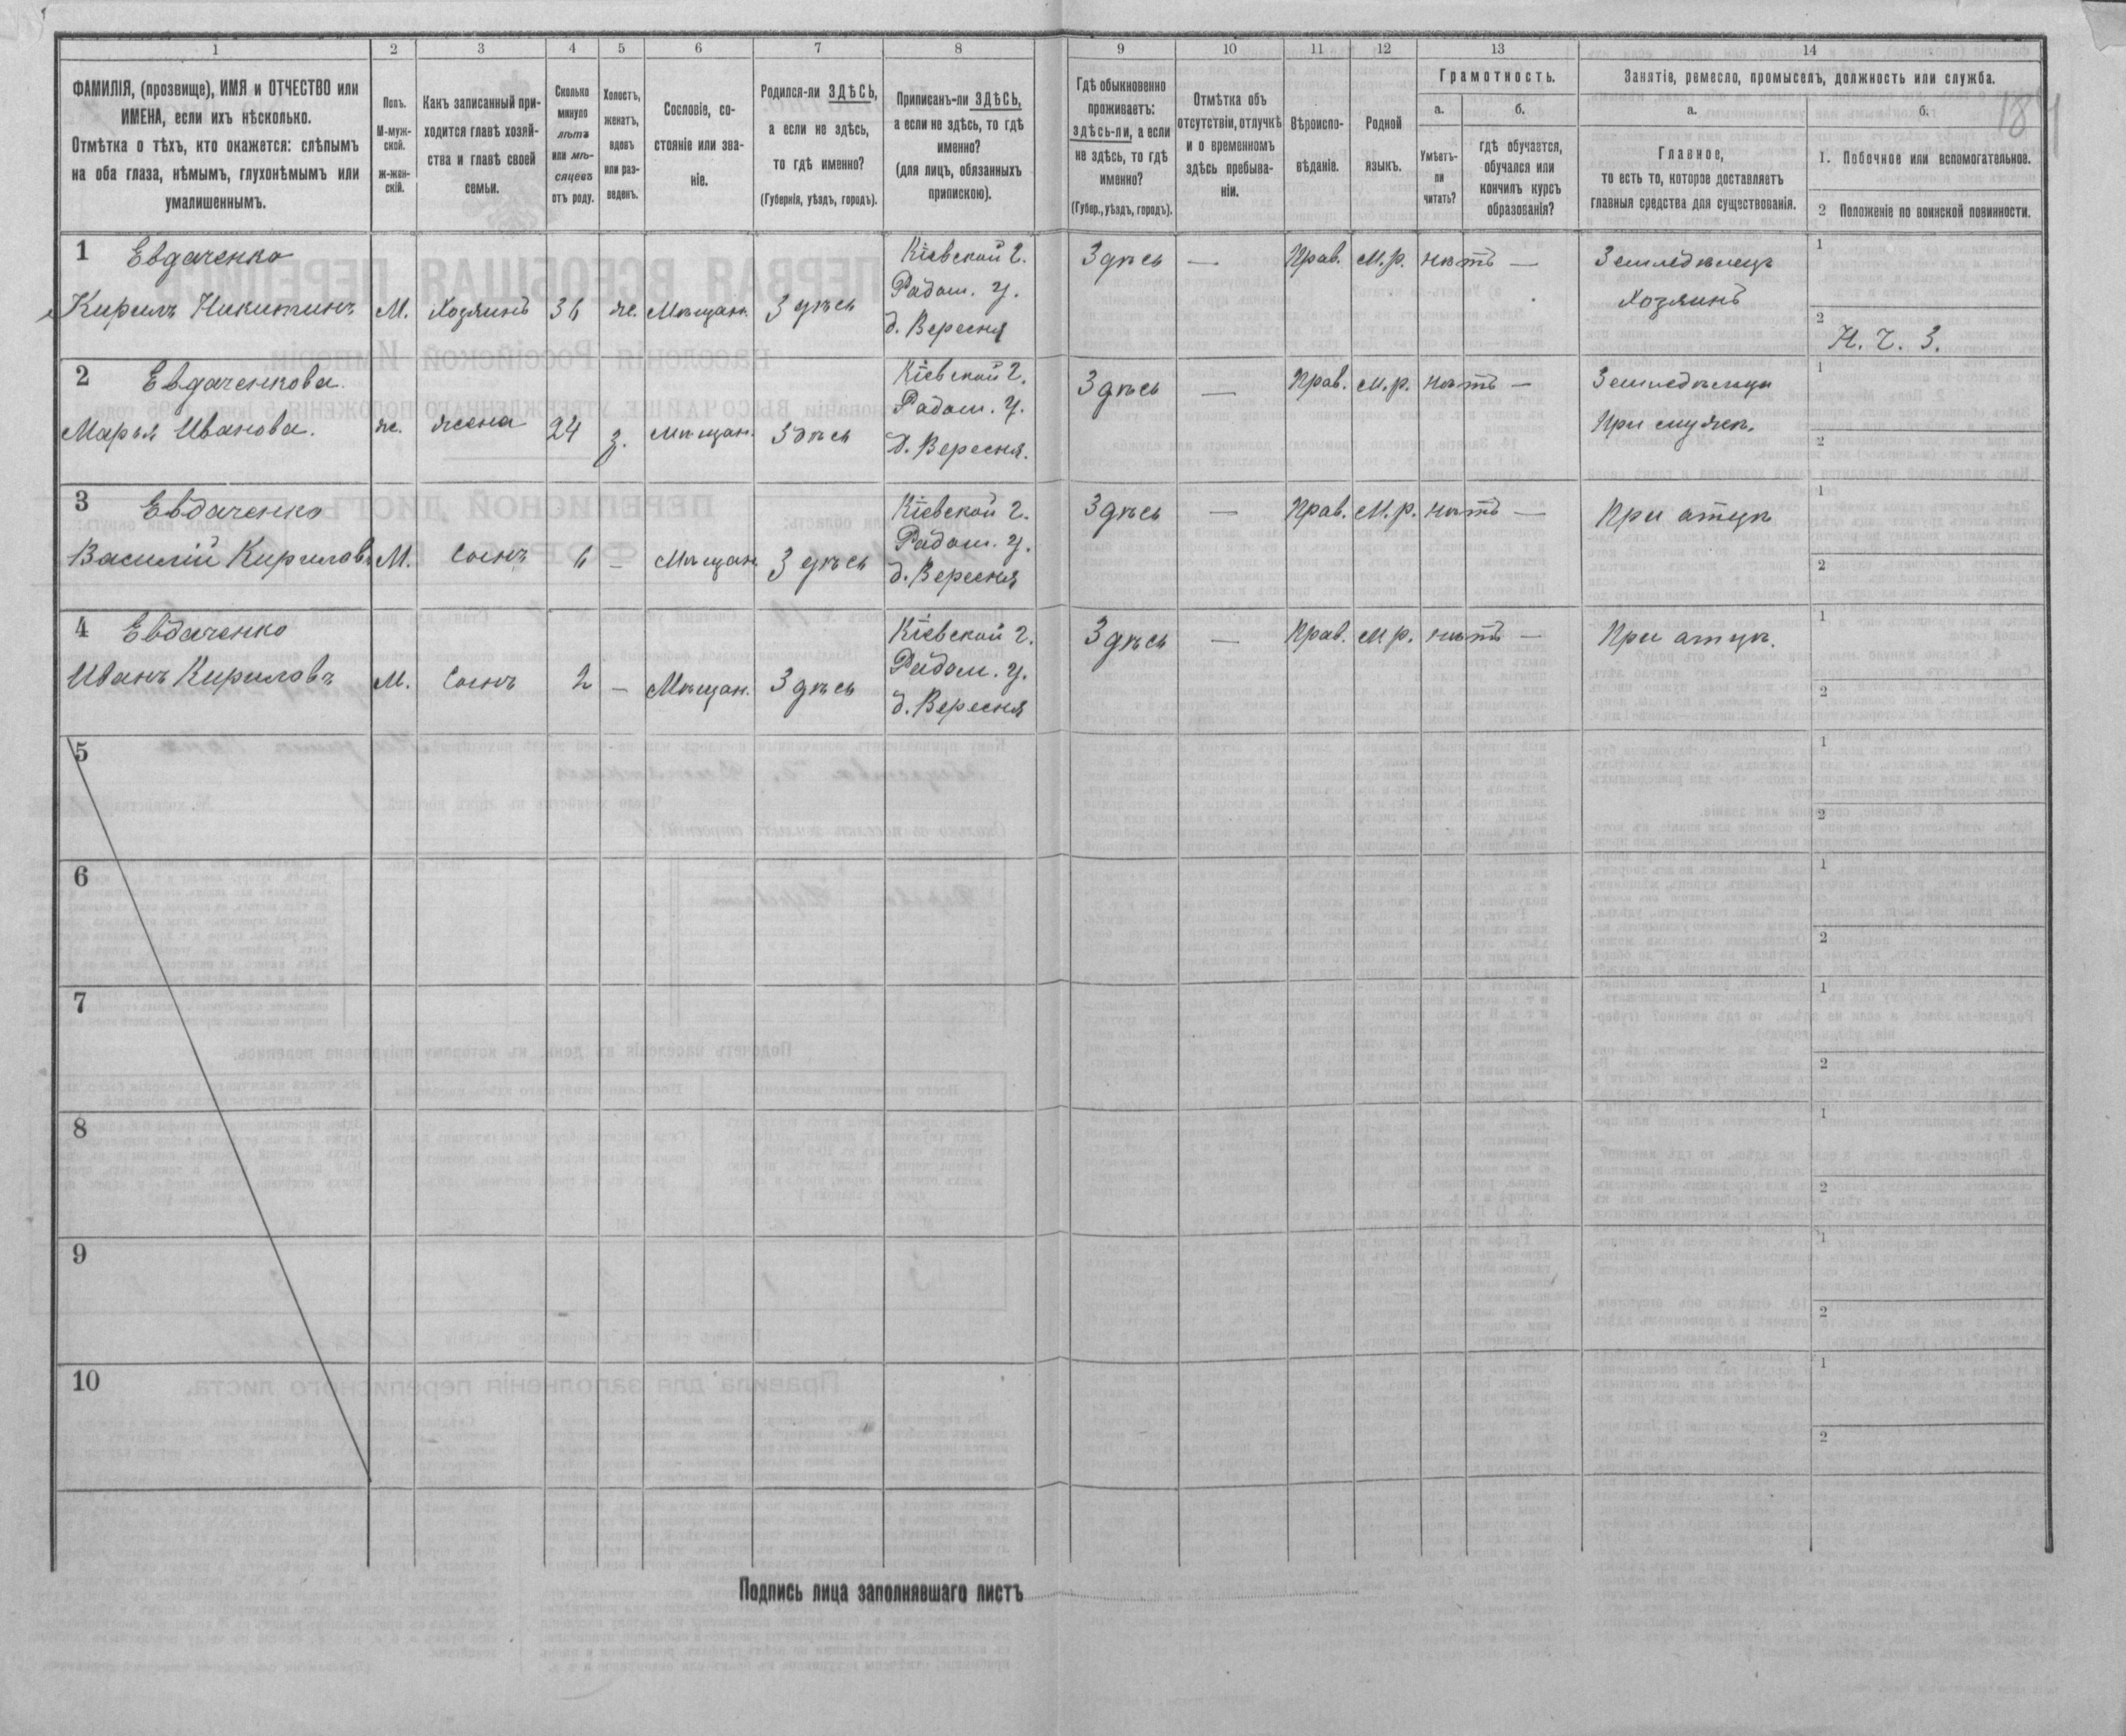 1 2 3 4 5 6 7 8 9 10 11 12 13 14
ФАМИЛІЯ, (прозвище), ИМЯ и ОТЧЕСТВО или
ИМЕНА, если ихъ нѣсколько.
Отмѣтка о тѣхъ, кто окажется: слѣпымъ
на оба глаза, нѣмымъ, глухонѣмымъ или
умалишеннымъ.
Полъ.
М-муж-
ской.
ж-жен-
скій.
Какъ записанный при-
ходится главѣ хозяй-
ства и главѣ своей
семьи.
Сколько
минуло
лѣтъ
или мѣ-
сяцевъ
отъ роду.
Холостъ,
женатъ,
вдовъ
или раз-
веденъ.
Сословіе, со-
стояніе или зва-
ніе.
Родился-ли ЗДѢСЬ,
а если не здѣсь,
то гдѣ именно?
(Губернія, уѣздъ, городъ).
Приписанъ-ли ЗДѢСЬ,
а если не здѣсь, то гдѣ
именно?
(для лицъ, обязанныхъ
припискою).
Гдѣ обыкновенно
проживаетъ:
здѣсь-ли, а если
не здѣсь, то гдѣ
именно?
(Губер., уѣздъ, городъ).
Отмѣтка объ
отсутствіи, отлучкѣ
и о временномъ
здѣсь пребыва-
ніи.
Вѣроиспо-
вѣданіе.
Родной
языкъ.
Грамотность.
а.
Умѣетъ-
ли
читать?
б.
гдѣ обучается,
обучался или
кончилъ курсъ
образованія?
Занятіе, ремесло, промыселъ, должность или служба.
а.
Главное,
то есть то, которое доставляетъ
главныя средства для существованія.
б.
1. Побочное или вспомогательное.
2 Положеніе по воинской повинности.
1 Евдаченко
Кирилъ Никитинъ М. Хозяинъ 36 ж. Мѣщан. Здѣсь
Кіевской г.
Радом. у.
д. Вересня
Здѣсь — Прав. М.р. нѣтъ —
Земледѣлецъ
Хозяинъ
1
2
Н. Ч. З.
2 Евдаченкова.
Марья Иванова. ж. жена 24 з. мѣщан. Здѣсь
Кіевской г.
Радом. у.
д. Вересня.
Здѣсь — Прав. М.р. нѣтъ —
При мужѣ.
1
2
3 Евдаченко
Василій Кириловъ М. Сынъ 6 — Мѣщан. Здѣсь
Кіевской г.
Радом. у.
д. Вересня
Здѣсь — Прав. М.р. нѣтъ —
При отцѣ
1
2
4 Евдаченко
Иванъ Кириловъ М. Сынъ 2 — Мѣщан. Здѣсь
Кіевской г.
Радом. у.
д. Вересня
Здѣсь — Прав. М.р. нѣтъ —
При отцѣ.
1
2
5
1
2
6
1
2
7
1
2
8
1
2
9
1
2
10
1
2
Подпись лица заполнявшаго листъ